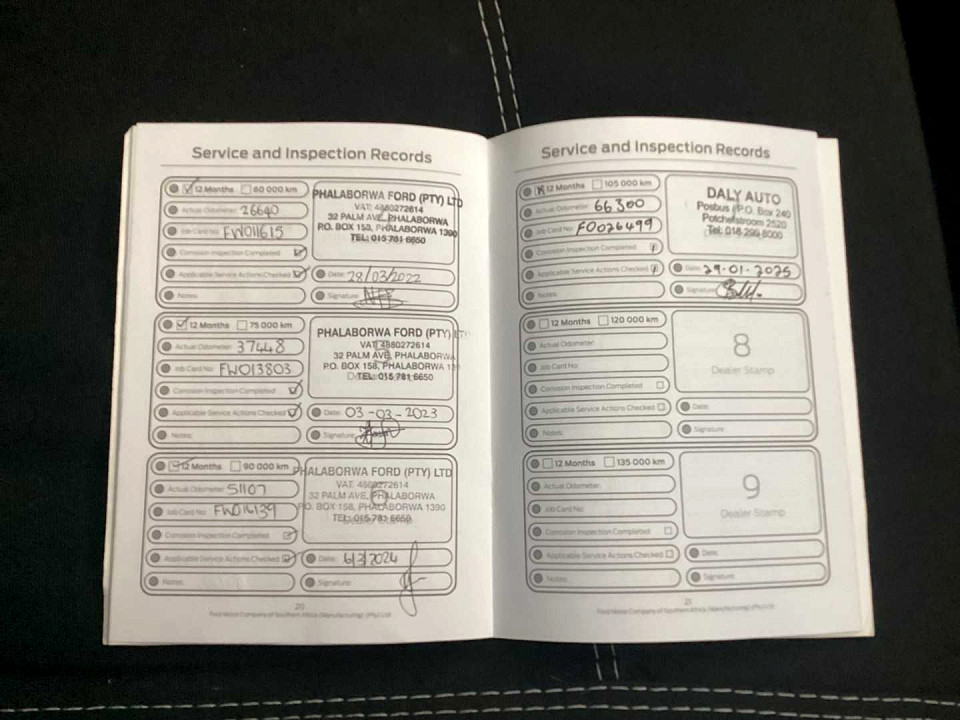 Service and Inspection Records
12 Months 60 000 km
Actual Odometer: 26640
Job Card No: FW011615
Corrosion Inspection Completed
Applicable Service Actions Checked
Notes:
PHALABORWA FORD (PTY) LTD
VAT: 4880272614
32 PALM AVE, PHALABORWA
P.O. BOX 158, PHALABORWA 1390
TEL: 015 781 6650
Date: 28/03/2022
Signature:
12 Months 75 000 km
Actual Odometer: 37448
Job Card No: FW013803
Corrosion Inspection Completed
Applicable Service Actions Checked
Notes:
PHALABORWA FORD (PTY) LTD
VAT: 4880272614
32 PALM AVE, PHALABORWA
P.O. BOX 158, PHALABORWA 13
TEL: 015 781 6650
Date: 03-03-2023
Signature:
12 Months 90 000 km
Actual Odometer: 51107
Job Card No: FW016139
Corrosion Inspection Completed
Applicable Service Actions Checked
Notes:
PHALABORWA FORD (PTY) LTD
VAT: 4880272614
32 PALM AVE, PHALABORWA
P.O. BOX 158, PHALABORWA 1390
TEL: 015 781 6650
6
Date: 6/3/2024
Signature:
20
Ford Motor Company of Southern Africa (Manufacturing) (Pty) Ltd
Service and Inspection Records
12 Months 105 000 km
Actual Odometer: 66300
Job Card No: F0026499
Corrosion Inspection Completed
Applicable Service Actions Checked
Notes:
DALY AUTO
Posbus / P.O. Box 240
Potchefstroom 2520
Tel: 018 299 8000
Date: 29-01-2025
Signature:
12 Months 120 000 km
Actual Odometer:
Job Card No:
Corrosion Inspection Completed
Applicable Service Actions Checked
Notes:
8
Dealer Stamp
Date:
Signature:
12 Months 135 000 km
Actual Odometer:
Job Card No:
Corrosion Inspection Completed
Applicable Service Actions Checked
Notes:
9
Dealer Stamp
Date:
Signature:
21
Ford Motor Company of Southern Africa (Manufacturing) (Pty) Ltd